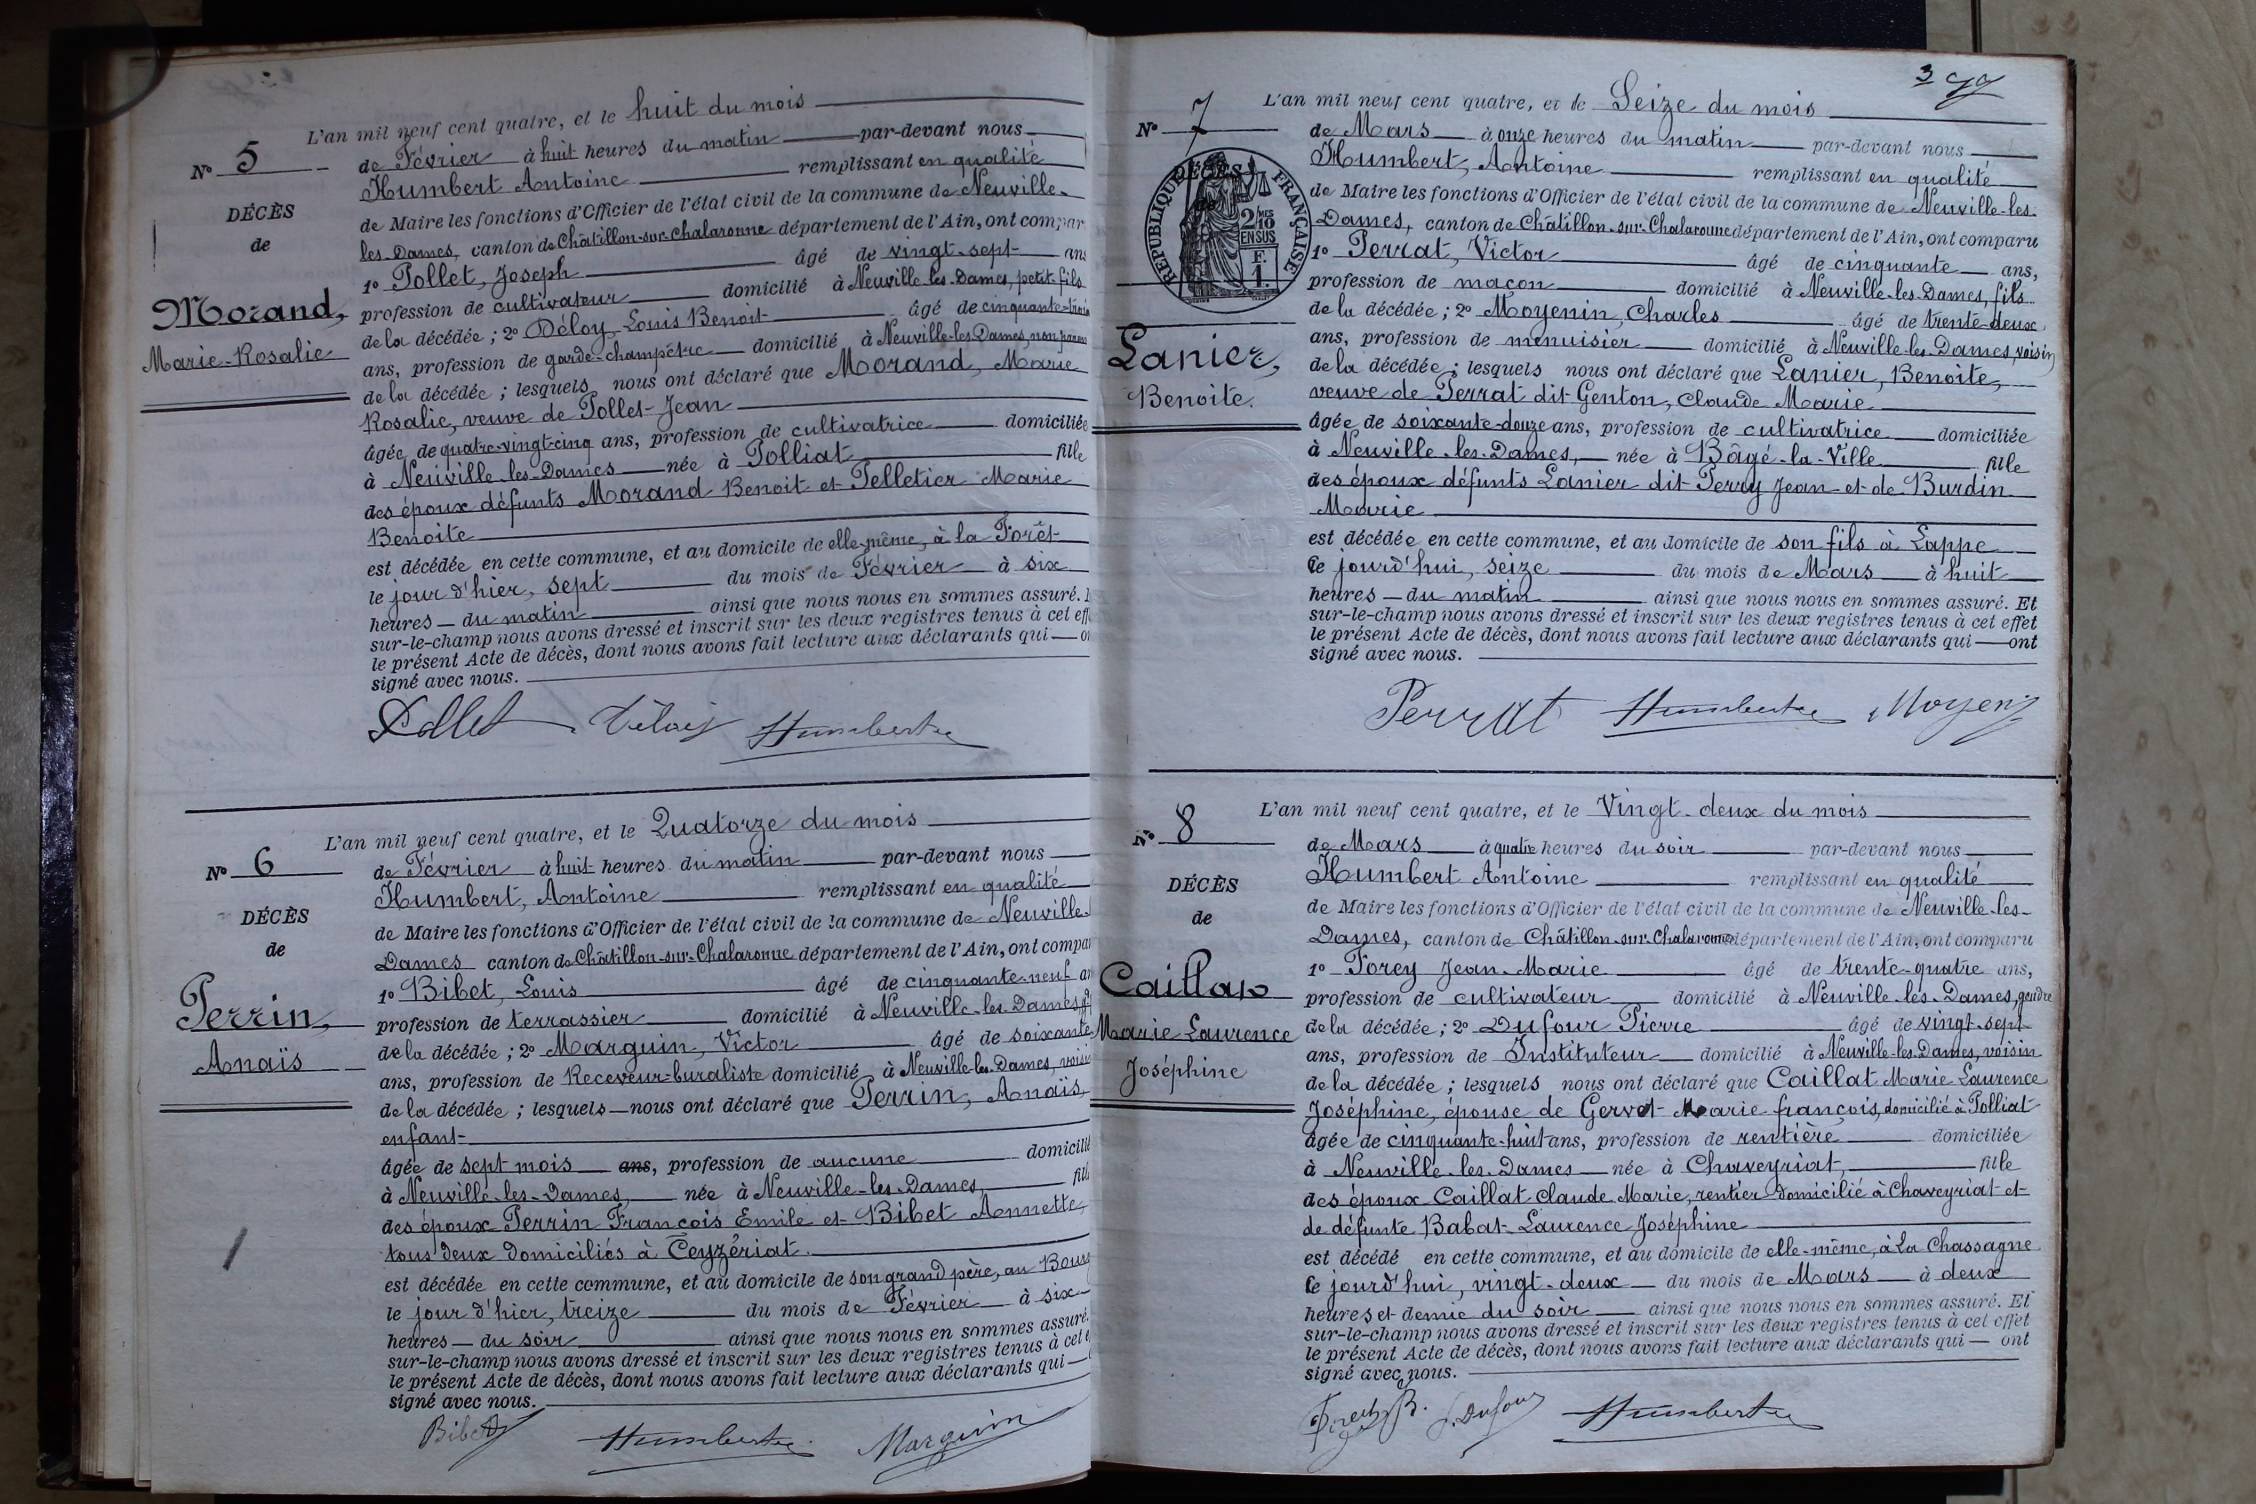 L'an mil neuf cent quatre, et le huit du mois
N° 5
de Février à huit heures du matin par-devant nous
Humbert Antoine remplissant en qualité
DÉCÈS
de Maire les fonctions d'Officier de l'état civil de la commune de Neuville-
de
les-Dames, canton de Châtillon-sur-Chalaronne département de l'Ain, ont compar
1° Pollet, Joseph âgé de vingt-sept ans
Morand,
profession de cultivateur domicilié à Neuville-les-Dames, petit-fils
Marie-Rosalie
de la décédée ; 2° Déloy Louis Benoit âgé de cinquante-trois
ans, profession de garde-champêtre domicilié à Neuville-les-Dames, non paren
de la décédée ; lesquels nous ont déclaré que Morand, Marie
Rosalie, veuve de Pollet Jean
âgée de quatre-vingt-cinq ans, profession de cultivatrice domiciliée
à Neuville-les-Dames née à Polliat fille
des époux défunts Morand Benoit et Pelletier Marie
Benoite
est décédée en cette commune, et au domicile de elle-même, à la Forêt
le jour d'hier, sept du mois de Février à six
heures — du matin ainsi que nous nous en sommes assuré.
sur-le-champ nous avons dressé et inscrit sur les deux registres tenus à cet eff
le présent Acte de décès, dont nous avons fait lecture aux déclarants qui — o
signé avec nous.
Pollet Déloy Humbert
L'an mil neuf cent quatre, et le Quatorze du mois
N° 6
de Février à huit heures du matin par-devant nous
Humbert, Antoine remplissant en qualité
DÉCÈS
de Maire les fonctions d'Officier de l'état civil de la commune de Neuville-
de
Dames canton de Châtillon-sur-Chalaronne département de l'Ain, ont compar
1° Bibet, Louis âgé de cinquante-neuf an
Perrin,
profession de terrassier domicilié à Neuville-les-Dames,
Anaïs
de la décédée ; 2° Marguin, Victor âgé de soixante
ans, profession de Receveur-buraliste domicilié à Neuville-les-Dames, voisin
de la décédée ; lesquels — nous ont déclaré que Perrin, Anaïs,
enfant
âgée de sept mois ans, profession de aucune domicilié
à Neuville-les-Dames, née à Neuville-les-Dames, fill
des époux Perrin François Emile et Bibet Annette,
tous deux domiciliés à Ceyzériat.
est décédée en cette commune, et au domicile de son grand père, au Bourg
le jour d'hier, treize du mois de Février à six
heures — du soir ainsi que nous nous en sommes assuré.
sur-le-champ nous avons dressé et inscrit sur les deux registres tenus à cet e
le présent Acte de décès, dont nous avons fait lecture aux déclarants qui —
signé avec nous.
Bibet Humbert Marguin
3
L'an mil neuf cent quatre, et le Seize du mois
N° 7
de Mars à onze heures du matin par-devant nous
Humbert, Antoine remplissant en qualité
DÉCÈS
de
RÉPUBLIQUE FRANÇAISE
2/10 MES
EN SUS
F.
1.
de Maire les fonctions d'Officier de l'état civil de la commune de Neuville-les-
Dames, canton de Châtillon-sur-Chalaronne département de l'Ain, ont comparu
1° Perrat, Victor âgé de cinquante ans,
profession de maçon domicilié à Neuville-les-Dames, fils
de la décédée ; 2° Moyenin, Charles âgé de trente-deux
Lanier,
Benoite.
ans, profession de menuisier domicilié à Neuville-les-Dames, voisin
de la décédée ; lesquels nous ont déclaré que Lanier, Benoite,
veuve de Perrat dit Genton, Claude Marie
âgée de soixante-douze ans, profession de cultivatrice domiciliée
à Neuville-les-Dames, née à Bâgé-la-Ville fille
des époux défunts Lanier dit Perry Jean et de Burdin
Marie
est décédée en cette commune, et au domicile de son fils à Lappe
le jourd'hui, seize du mois de Mars à huit
heures — du matin ainsi que nous nous en sommes assuré. Et
sur-le-champ nous avons dressé et inscrit sur les deux registres tenus à cet effet
le présent Acte de décès, dont nous avons fait lecture aux déclarants qui — ont
signé avec nous.
Perrat Humbert Moyenin
L'an mil neuf cent quatre, et le Vingt-deux du mois
N° 8
de Mars à quatre heures du soir par-devant nous
Humbert Antoine remplissant en qualité
DÉCÈS
de Maire les fonctions d'Officier de l'état civil de la commune de Neuville-les-
de
Dames, canton de Châtillon-sur-Chalaronne département de l'Ain, ont comparu
1° Forey Jean-Marie âgé de trente-quatre ans,
Caillat
profession de cultivateur domicilié à Neuville-les-Dames, gendre
Marie-Laurence
Joséphine
de la décédée ; 2° Dufour Pierre âgé de vingt-sept
ans, profession de Instituteur domicilié à Neuville-les-Dames, voisin
de la décédée ; lesquels nous ont déclaré que Caillat Marie Laurence
Joséphine, épouse de Gervat Marie françois, domicilié à Polliat
âgée de cinquante-huit ans, profession de rentière domiciliée
à Neuville-les-Dames née à Chaveyriat, fille
des époux Caillat Claude Marie, rentier domicilié à Chaveyriat et
de défunte Babat Laurence Joséphine
est décédé en cette commune, et au domicile de elle-même, à La Chassagne
le jourd'hui, vingt-deux du mois de Mars à deux
heures et demie du soir ainsi que nous nous en sommes assuré. Et
sur-le-champ nous avons dressé et inscrit sur les deux registres tenus à cet effet
le présent Acte de décès, dont nous avons fait lecture aux déclarants qui — ont
signé avec nous.
P. Dufour Humbert